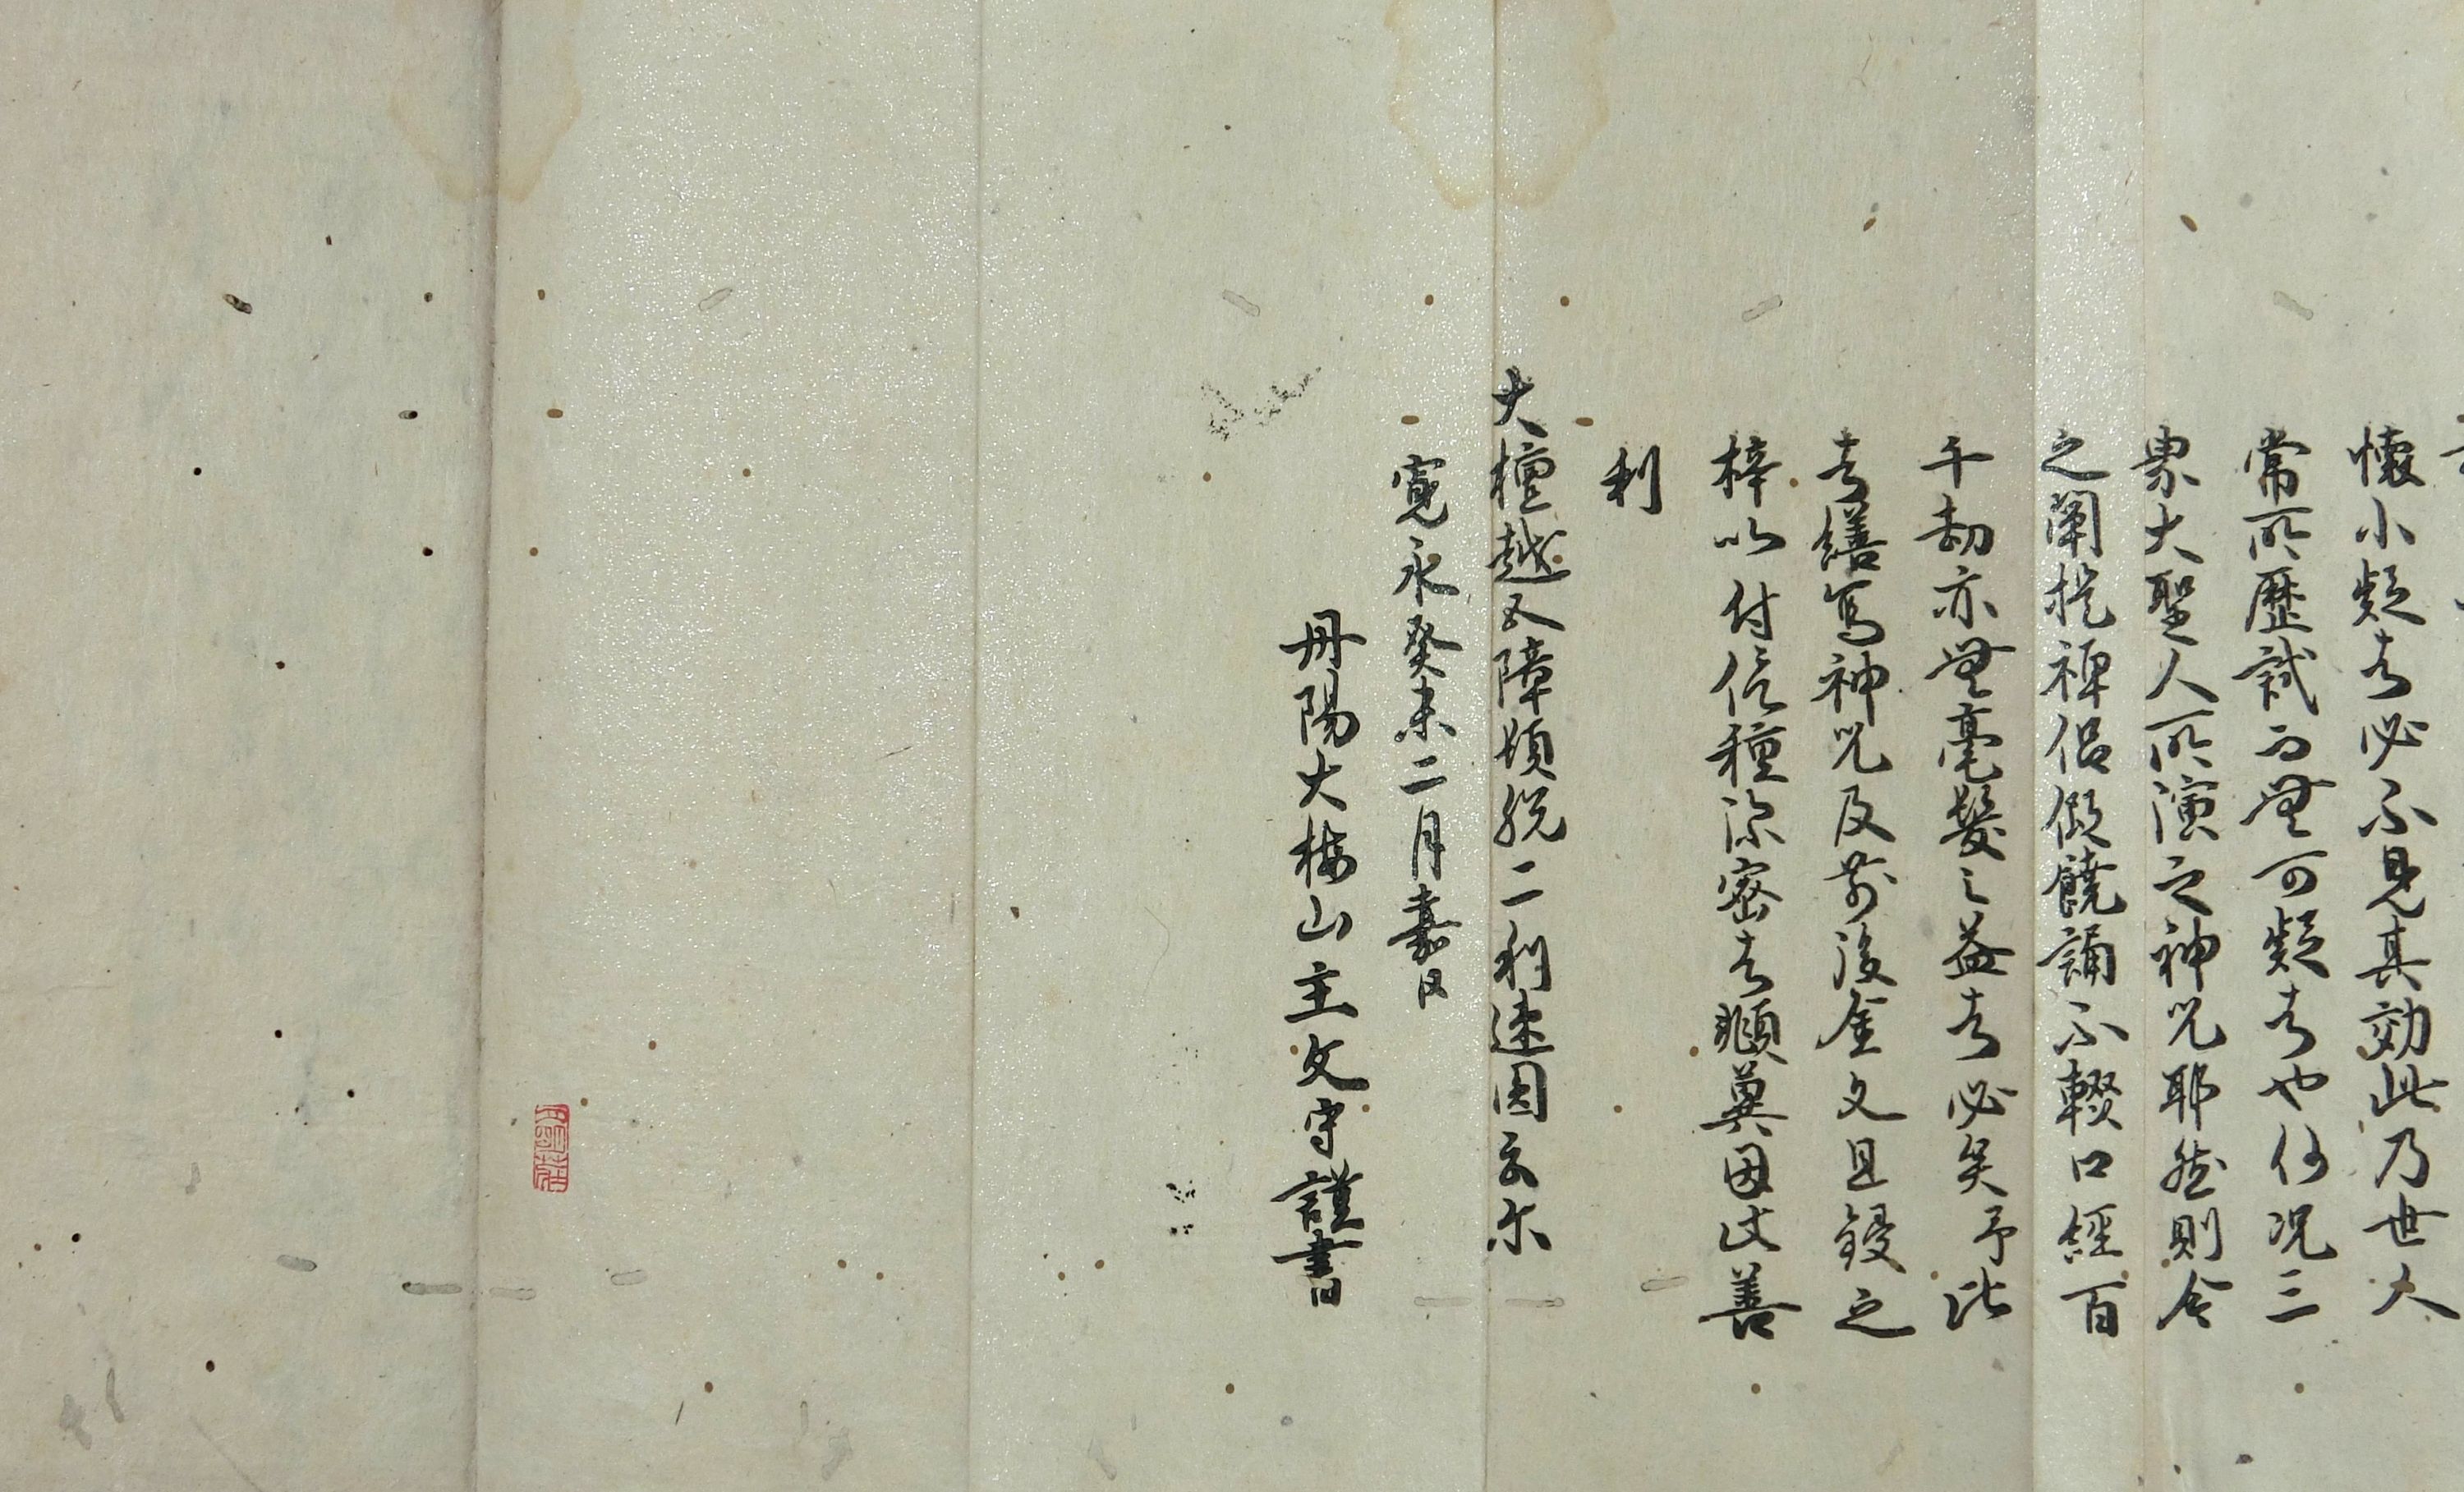 懐小疑者必不見其効此乃世人
常所歴試而無可疑者也何况三
界大聖人所演之神呪耶然則令
之闡提禅侶饒誦不輟口經百
千劫亦無毫髮之益者必矣予此
者繕寫神呪及前後金文且鋟之
梓以付信種深密者願糞因此善
利
大檀越五障頓脱二利速圓云尓
寛永癸未二月嘉日
丹陽大梅山主文守謹書